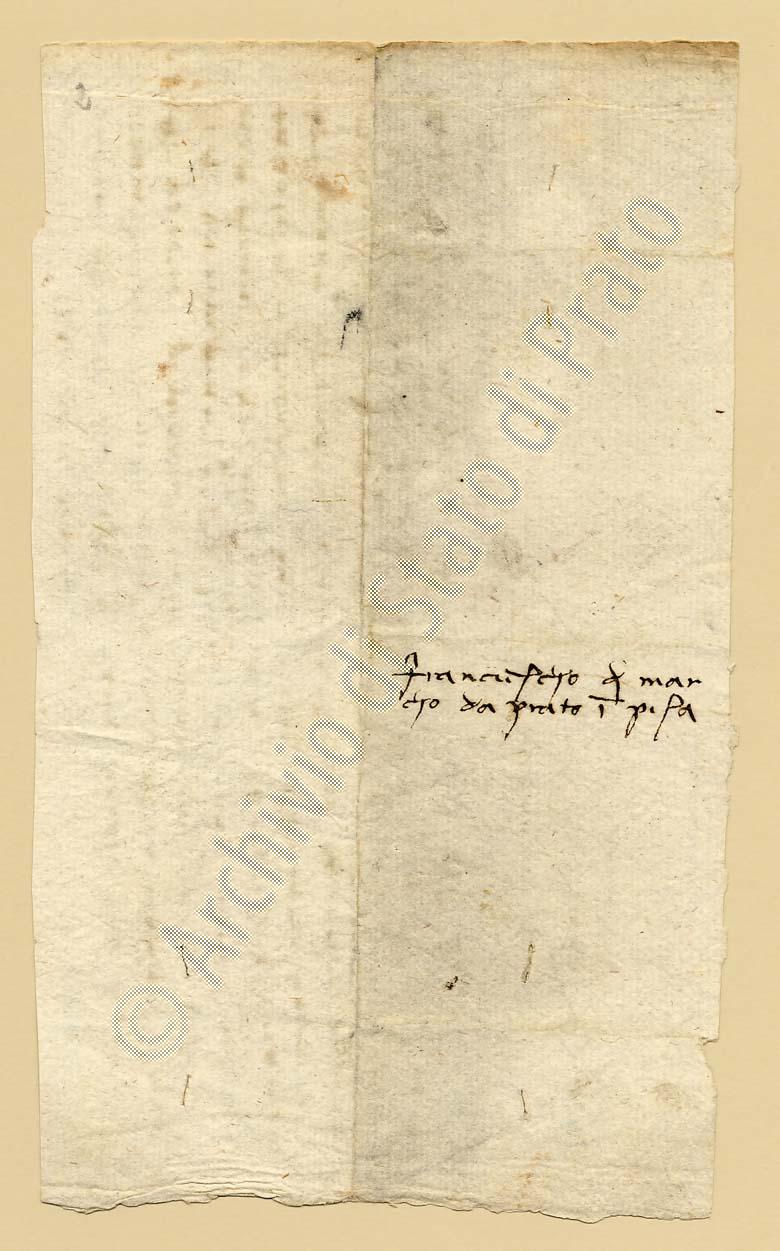 2
franciescho d mar
cho da prato ī pisa
© Archivio di Stato di Prato